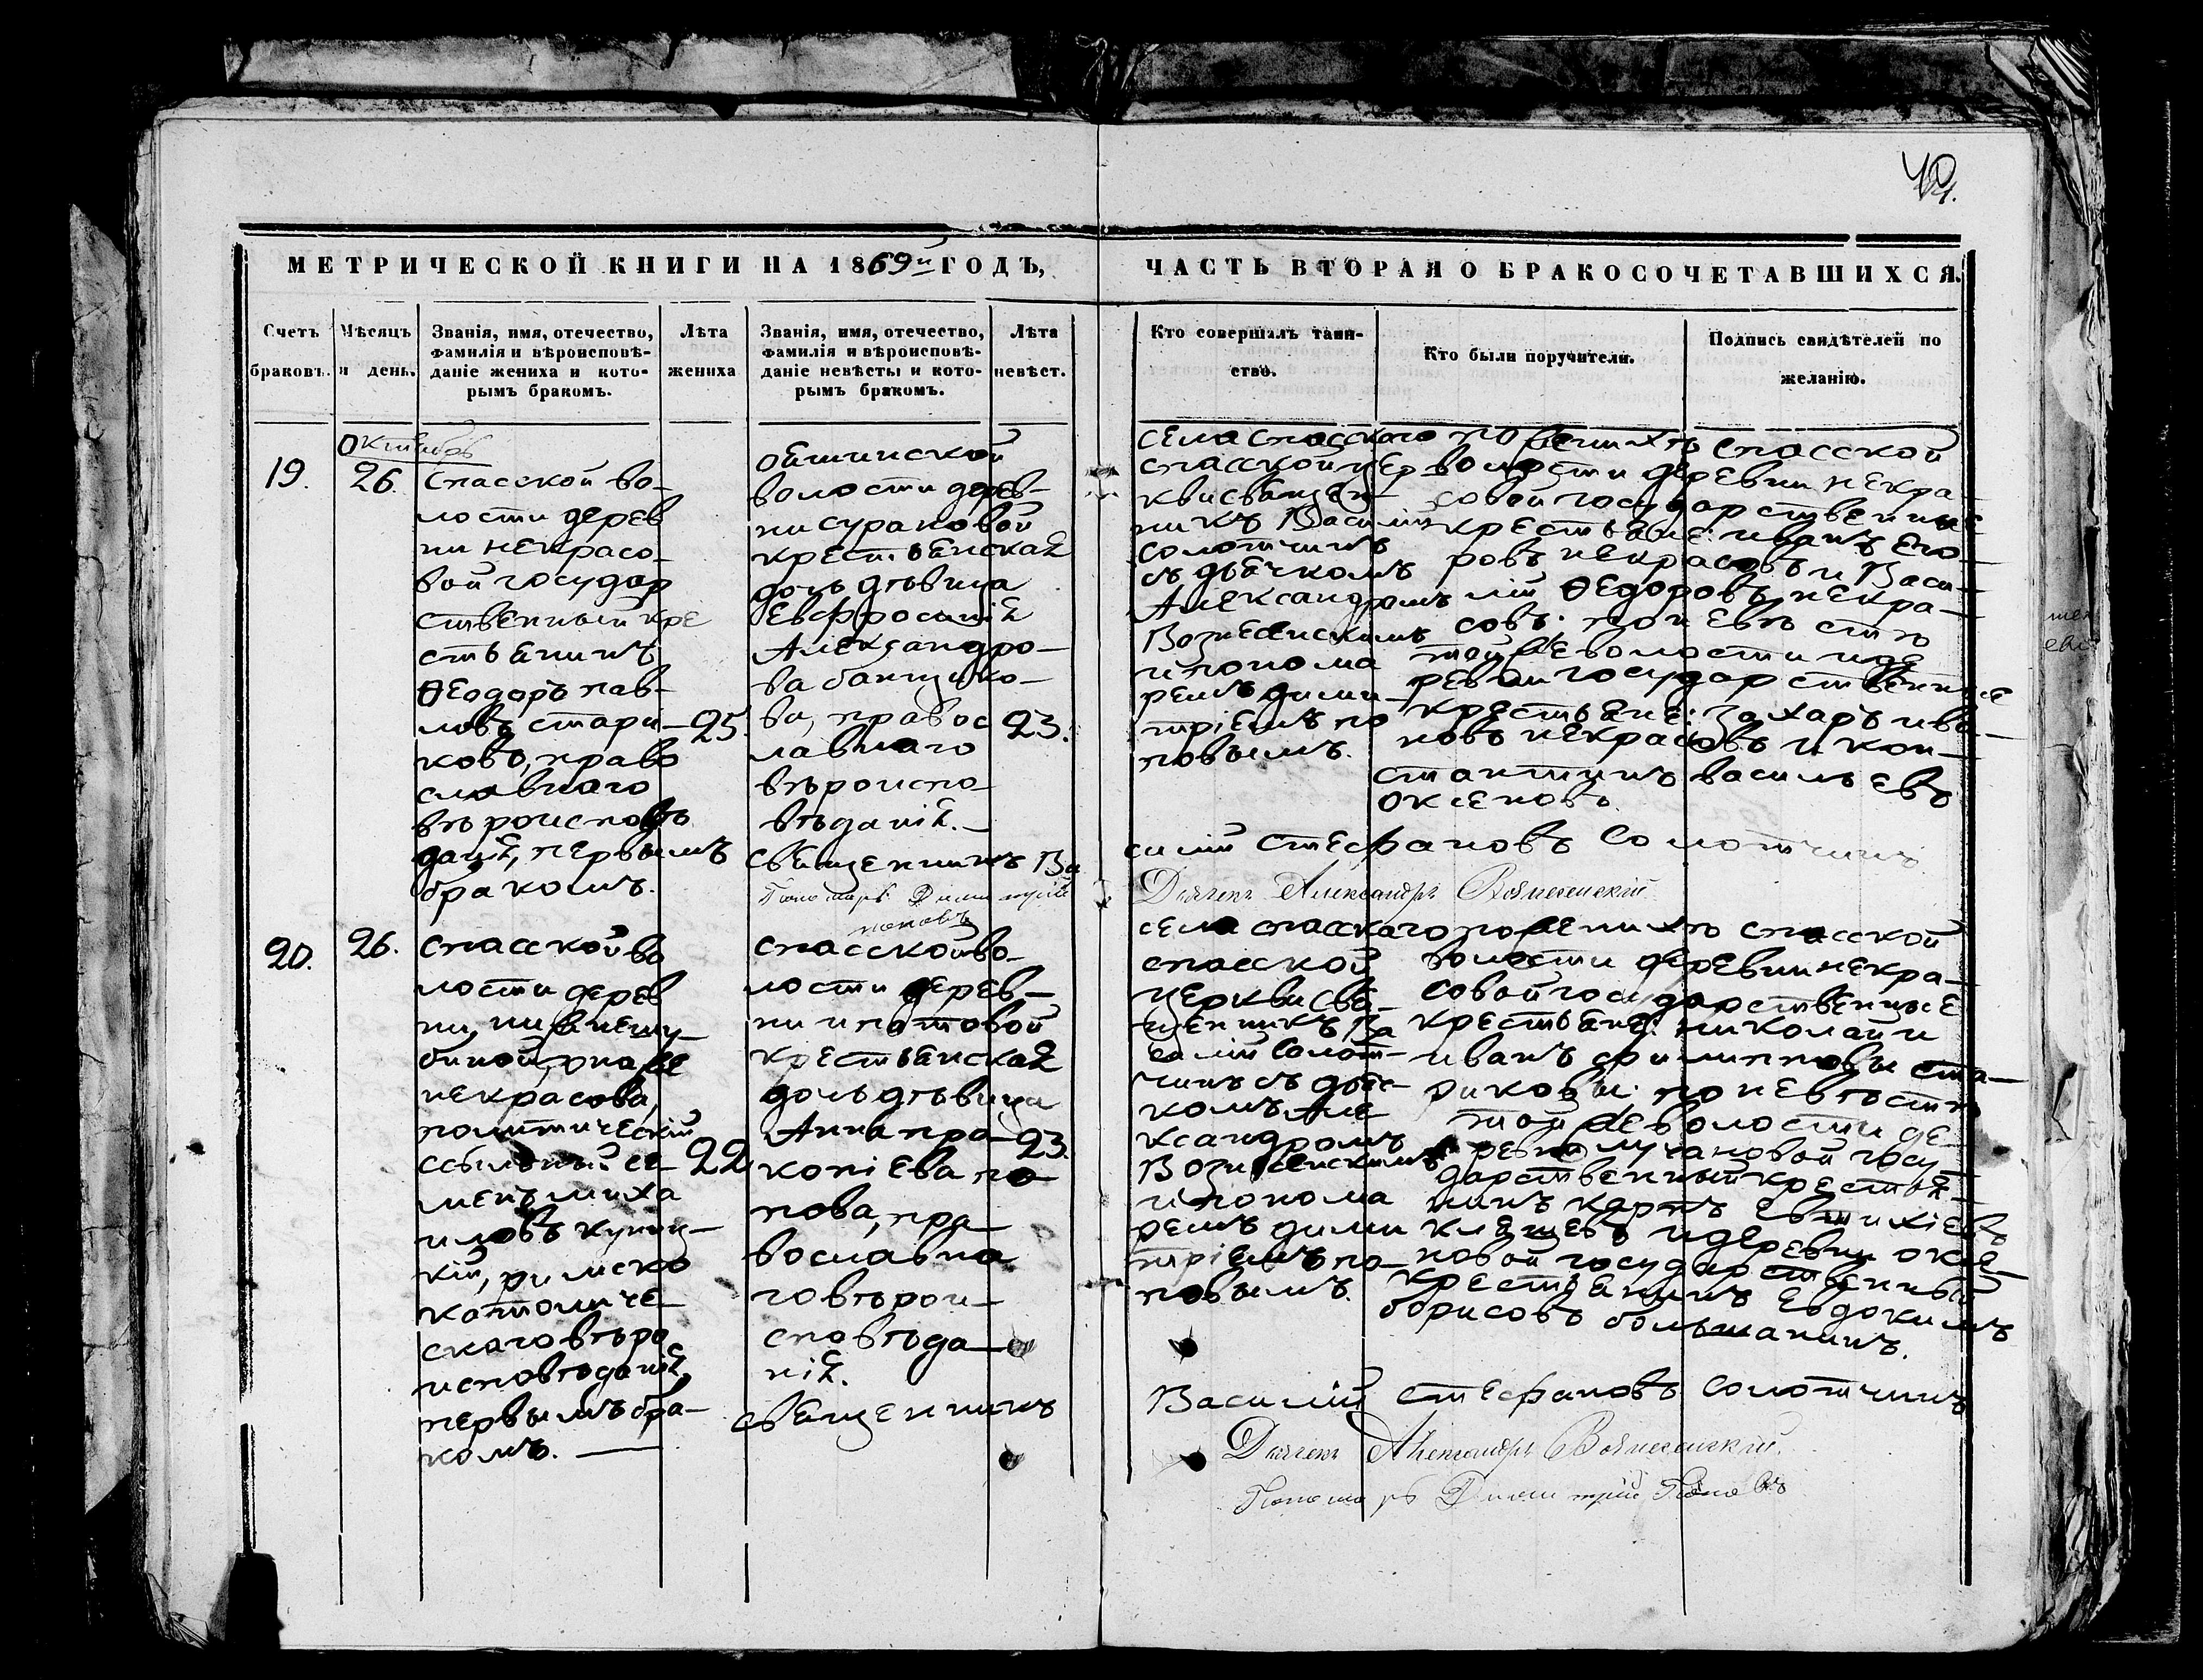 49.
МЕТРИЧЕСКОЙ КНИГИ НА 1869й ГОДЪ,
ЧАСТЬ ВТОРАЯ О БРАКОСОЧЕТАВШИХСЯ.
Счетъ
браковъ.
Мѣсяцъ
и день.
Званія, имя, отечество,
фамилія и вѣроисповѣ-
даніе жениха и кото-
рымъ бракомъ.
Лѣта
жениха
Званія, имя, отечество,
фамилія и вѣроисповѣ-
даніе невѣсты и кото-
рымъ бракомъ.
Лѣта
невѣст.
Кто совершалъ таин-
ство.
Кто были поручители.
Подпись свидѣтелей по
желанію.
19.
Октябрь
26.
Спасской во-
лости дерев
ни некрасо-
вой государ
ственный кре
стьянинъ
Ѳеодоръ пав-
ловъ стари-
ковъ, право
славнаго
вѣроисповѣ
данія, первымъ
бракомъ.
25.
волости дерев-
ни сурановой
крестьянская
дочь дѣвица
Евфросинія
Александро-
ва банщико-
ва, правос
лавнаго
вѣроиспо
вѣданія.
23.
села спасскаго
спасской цер
кви священ-
никъ Василій
солотчинъ
съ дьячкомъ
Александромъ
Вознесенскимъ
и понома
ремъ дими-
тріемъ по
повымъ.
по женихѣ спасской
волости деревни некра-
совой государственные
крестьяне: иванъ его-
ровъ некрасовъ и Васи-
лій Ѳедоровъ некра-
совъ. по невѣстѣ
той же волости и де
ревни государственные
крестьяне: захаръ ива-
новъ некрасовъ и кон-
стантинъ васильевъ
оксеновъ.
священникъ Ва
силій стефановъ Солотчинъ
Дьячекъ Александръ Вознесенскій
Пономарь Димитрій
поповъ
20.
26.
спасской во
лости дерев
ни, нижнешу-
биной, она же
некрасова,
политическій
ссыльный се-
менъ миха
иловъ купец-
кій, римско
католиче-
скаго вѣро
исповѣданія,
первымъ бра-
комъ.
22
спасской во-
лости дерев-
ни ипатовой
крестьянская
дочь дѣвица
Анна про-
копіева по
пова, пра-
вославна
го вѣрои-
сповѣда-
нія.
23.
села спасскаго
спасской
церкви свя-
щенникъ Ва
силій Солот-
чинъ съ дьяч-
комъ Але
ксандромъ
Вознесенскимъ
и понома
ремъ дими
тріемъ по-
повымъ.
по женихѣ спасской
волости деревни некра-
совой государственные
крестьяне: николай и
иванъ филипповы ста-
риковы: по невѣстѣ
той же волости де-
ревни лучановой госу
дарственный крестья-
нинъ карпъ Евтихіевъ
клещевъ и деревни оксе-
новой государственный
крестьянинъ Евдокимъ
борисовъ большанинъ.
священникъ
Василій стефановъ солотчинъ
Дьячекъ Александръ Вознесенскій.
Пономарь Димитрій Поповъ